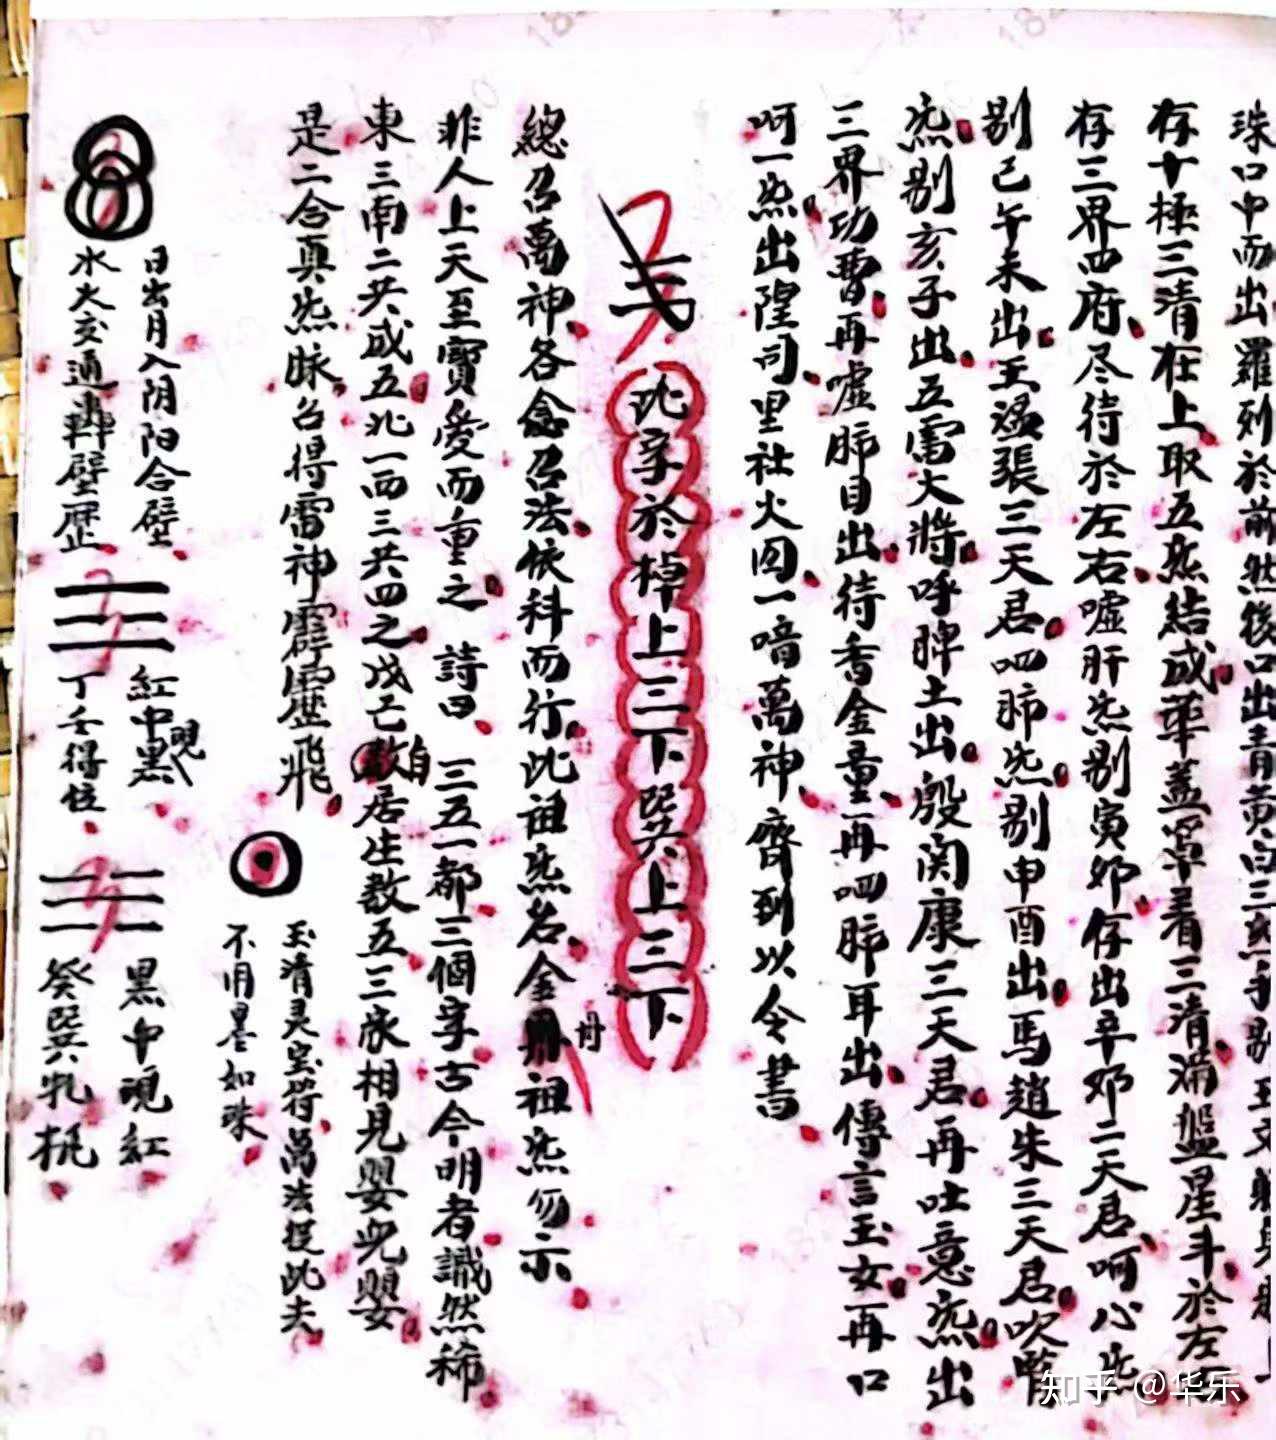 珠口中而出羅列於前然後口出青黄白三炁手剔
存十極三清在上取五炁結成華蓋罩着三清满盤星斗於左
存三界四府尽待於左右嘘肝炁剔寅卯存出辛邓二天君呵心炁
剔巳午未出王温張三天君呬肺炁剔申酉出馬趙朱三天君吹腎
炁剔亥子出五雷大將呼脾土出殷関康三天君再吐意炁出
三界功曹再嘘肺目出待香金童再呬肺耳出傳言玉女再口
呵一炁出隍司里社火囚一喑萬神齊到以令書
此字於棹上三下巽上三下
總召萬神各念召法依科而行此祖炁名金丹祖炁勿示
非人上天至寳愛而重之 詩曰 三五一都三個字古今明者識然稀
東三南二共成五北一西三共四之戊己自居生数五三家相見嬰兒嬰
是二合真炁脉召得雷神霹靂飛
玉清灵宝符萬法從此夫
不用墨如珠
日出月入阴阳合壁
水火交通轟壁歷
紅中現黑
丁壬得位
黑中現紅
癸巽牝
知乎 @华乐